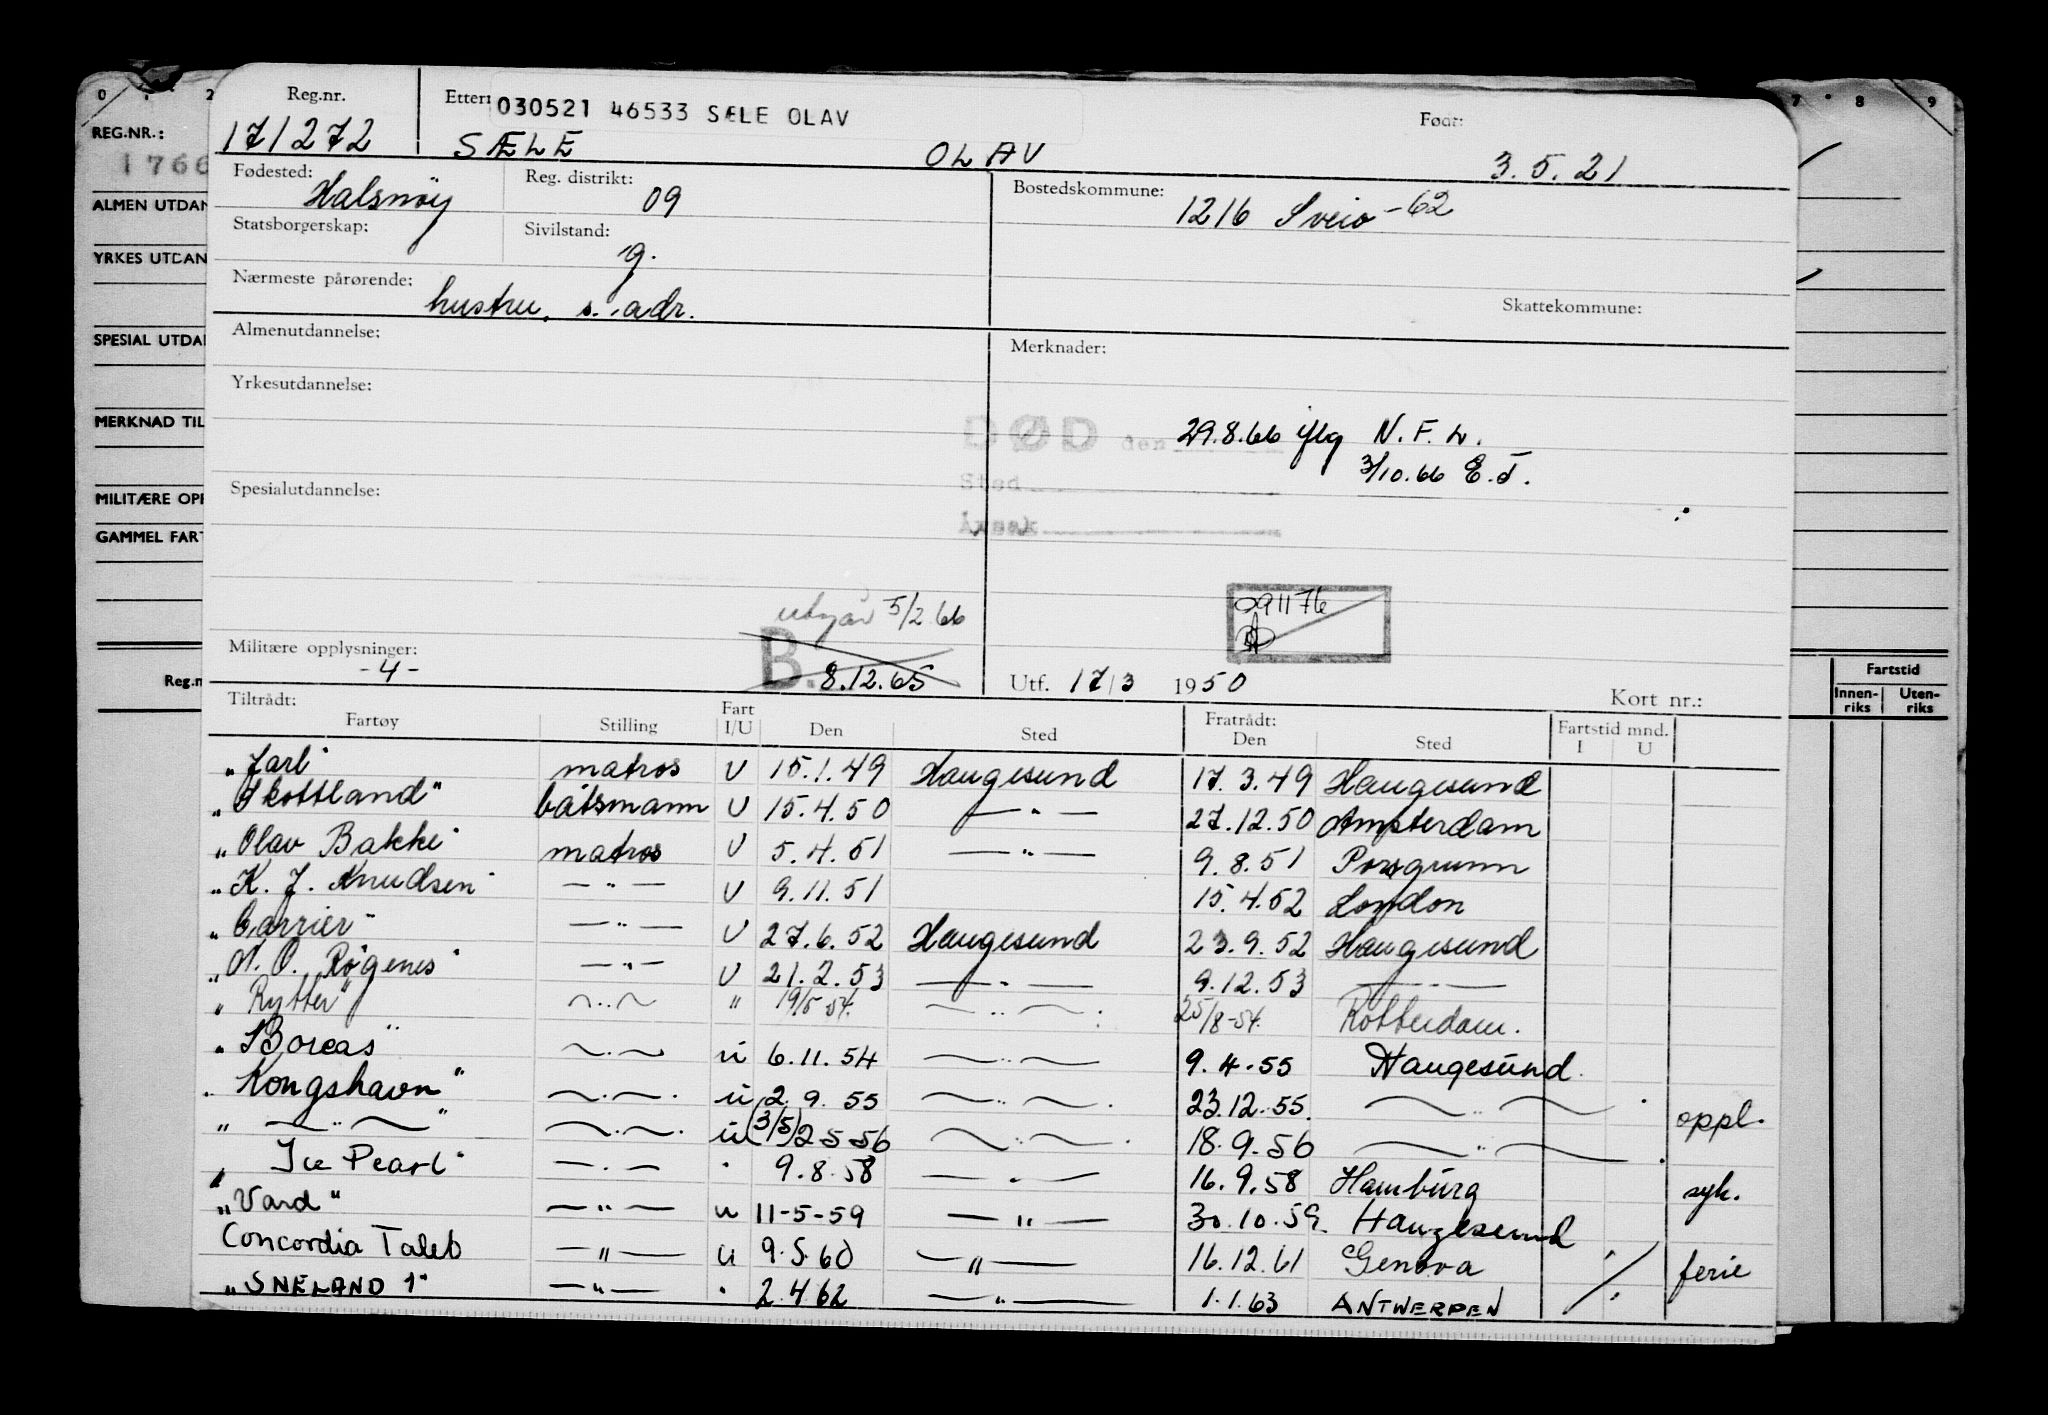 0 . 2 7 . 8 9
REG.NR.:
1766
ALMEN UTDAN
YRKES UTDAN
SPESIAL UTDAN
MERKNAD TIL
MILITÆRE OPP
GAMMEL FART
Reg.n
Fartstid
Innen-riks Uten-riks
Reg.nr. Ettern 030521 46533 SÆLE OLAV Født:
171272 SÆLE OLAV 3.5.21
Fødested: Halsnøy Reg. distrikt: 09 Bostedskommune: 1216 Sveio -62
Statsborgerskap: Sivilstand: g.
Nærmeste pårørende: hustru. s. adr. Skattekommune:
Almenutdannelse: Merknader:
Yrkesutdannelse:
DØD den 29.8.66 iflg N.F.L.
Sted 3/10.66 E.T.
Spesialutdannelse:
Årsak
091176
utgår 5/2.66
Militære opplysninger: -4- B. 8.12.65 Utf. 17/3 1950 Kort nr.:
Tiltrådt: Fratrådt: Fartstid mnd.
Fartøy Stilling Fart I/U Den Sted Den Sted I U
"Jarl" matros U 15.1.49 Haugesund 17.3.49 Haugesund
"Skottland" båtsmann U 15.4.50 —"— 27.12.50 Amsterdam
"Olav Bakke" matros U 5.4.51 —"— 9.8.51 Porsgrunn
"K. J. Knudsen" —"— U 9.11.51 15.4.52 London
"Carrier" —"— U 27.6.52 Haugesund 23.9.52 Haugesund
"N. O. Røgenes" —"— U 21.2.53 —"— 9.12.53 —"—
"Rytter" —"— " 19/5-54. —"— 25/8-54. Rotterdam.
"Boreas" —"— u 6.11.54 —"— 9.4-55 Haugesund.
"Kongshavn" —"— u 2.9.55 —"— 23.12.55. —"— oppl.
" —"— " —"— u (3/5) 2-5-56 —"— 18.9.56 —"—
"Ice Pearl" —"— " 9.8.58 —"— 16.9.58 Hamburg syk.
"Vard" —"— u 11-5-59 —"— 30.10.59. Haugesund
Concordia Taleb —"— u 9.5.60 —"— 16.12.61 Genova ferie
"SNELAND 1" —"— " 2.4 62 —"— 1.1.63 ANTWERPEN